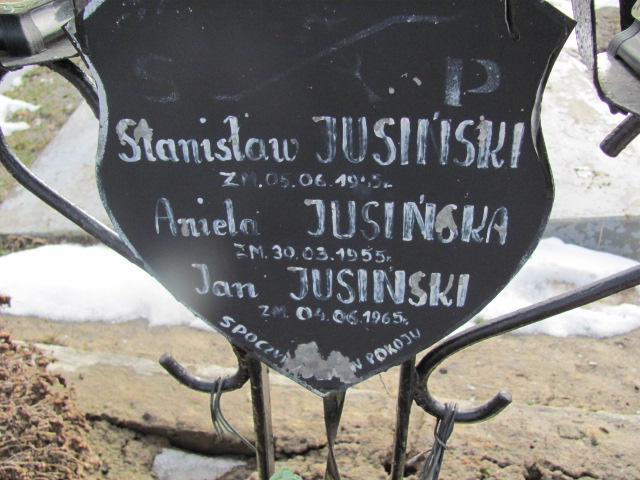 Ś P
Stanisław JUSIŃSKI
ZM. 05.06.19 5r.
Aniela JUSIŃSKA
ZM. 30.03.1955r.
Jan JUSIŃSKI
ZM. 04.06.1965r.
W POKOJU